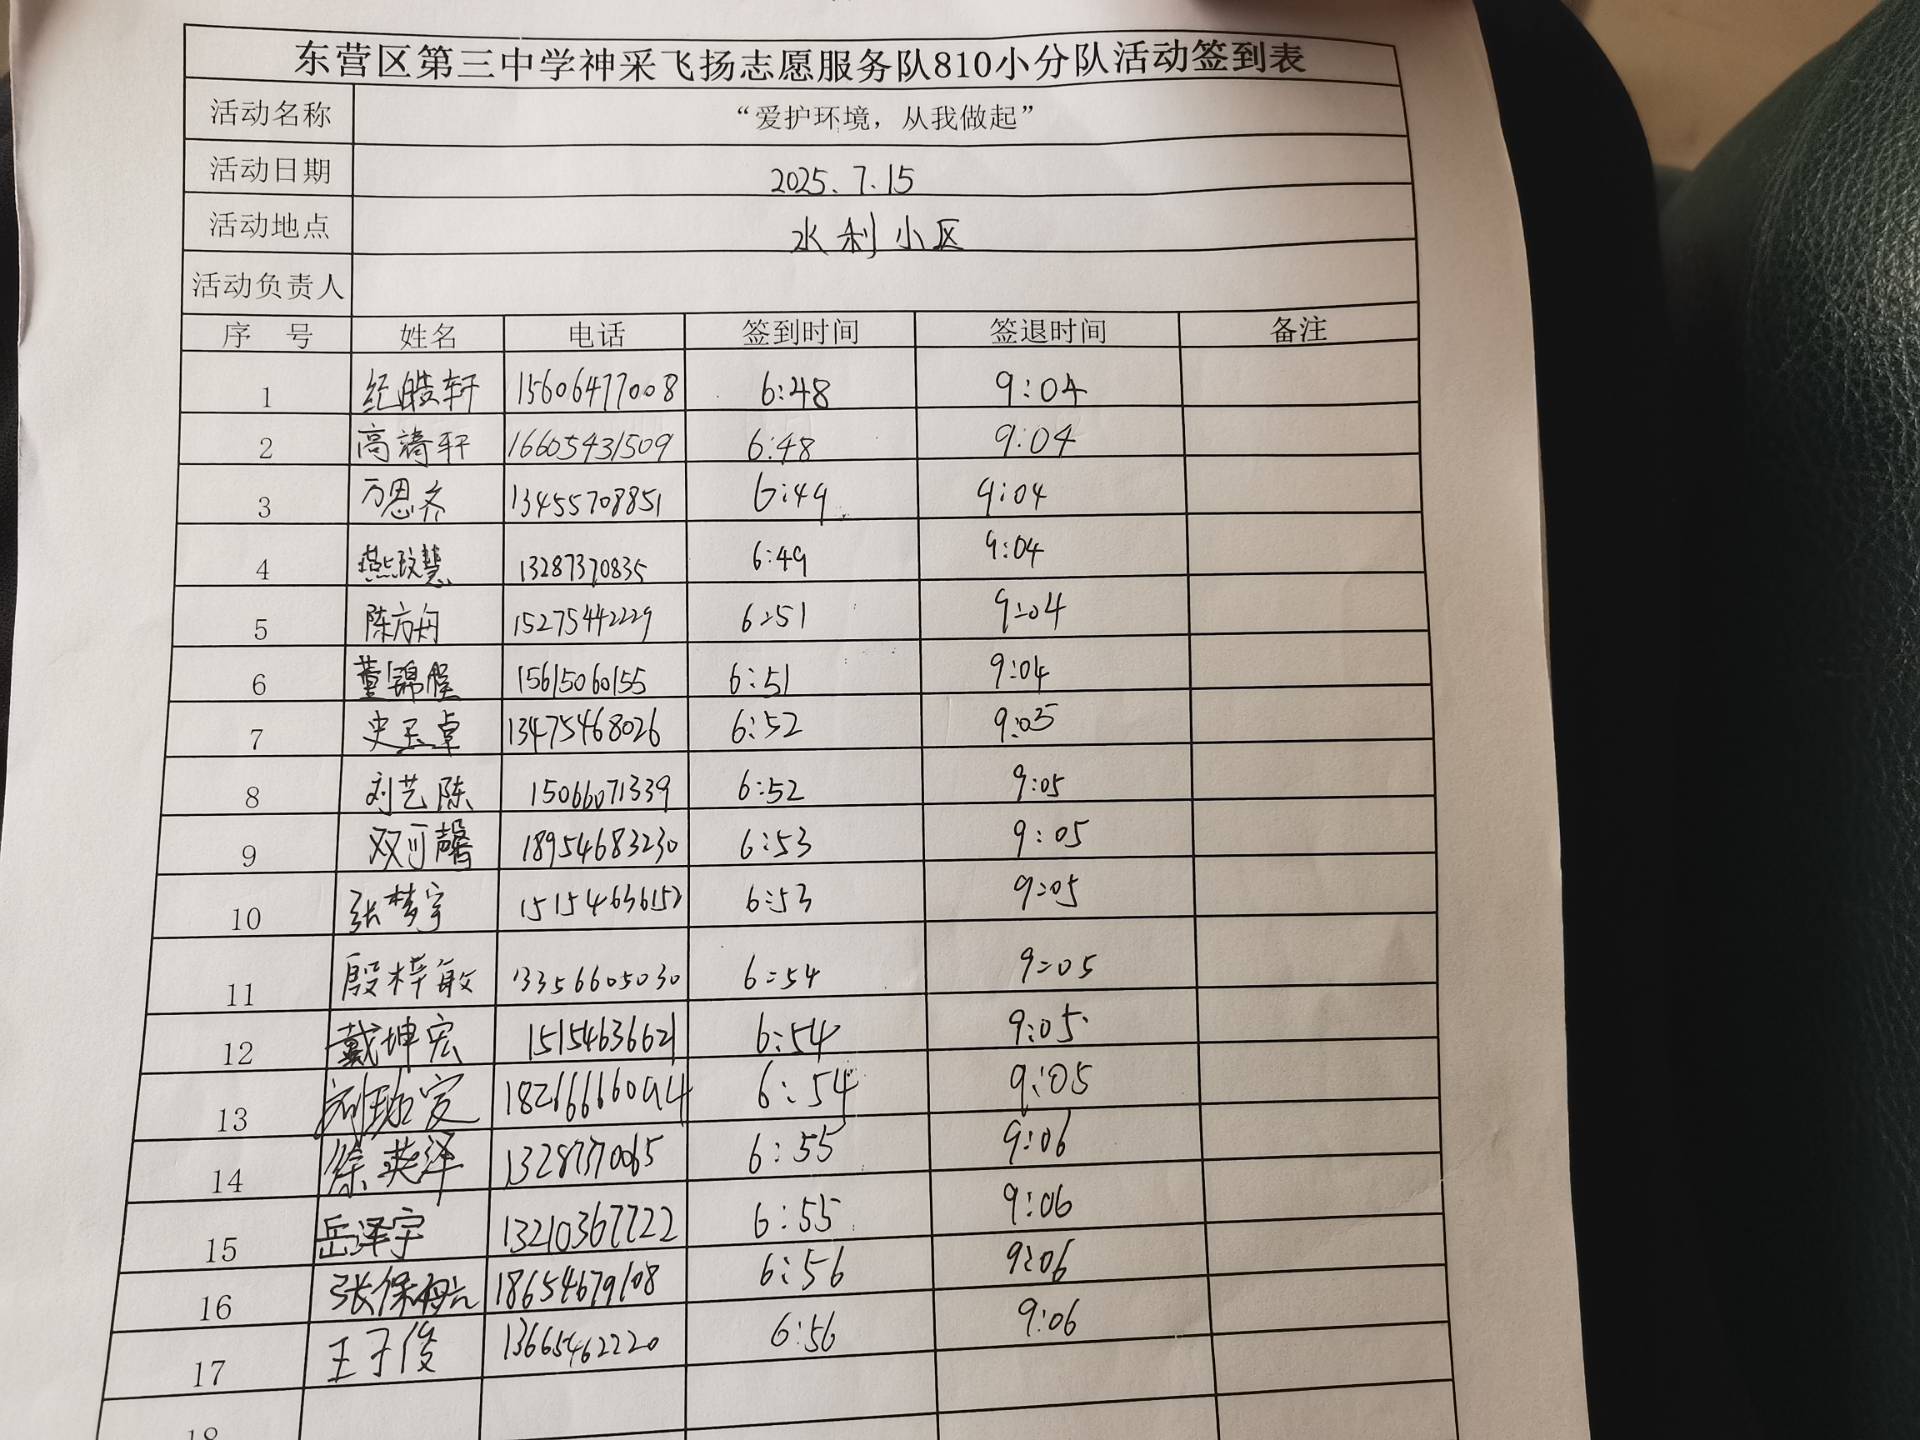 东营区第三中学神采飞扬志愿服务队810小分队活动签到表
活动名称 “爱护环境，从我做起”
活动日期 2025.7.15
活动地点 水利小区
活动负责人
序 号 姓名 电话 签到时间 签退时间 备注
1 纪皓轩 15606477008 6:48 9:04
2 高 轩 16605431509 6:48 9:04
3 万恩齐 13455708851 6:49 9:04
4 燕玟慧 13287370835 6:49 9:04
5 陈方舟 15275442229 6:51 9:04
6 董锦 15615060155 6:51 9:04
7 史玉卓 13475468026 6:52 9:05
8 刘艺陈 15066071339 6:52 9:05
9 双可馨 18954683230 6:53 9:05
10 张梦宇 15154636152 6:53 9:05
11 殷梓敏 13356605030 6:54 9:05
12 戴坤宏 15154636621 6:54 9:05
13 刘 18266616094 6:54 9:05
14 徐英泽 13287370065 6:55 9:06
15 岳泽宇 13210367722 6:55 9:06
16 张保航 18654679108 6:56 9:06
17 王子俊 13665462220 6:56 9:06
18